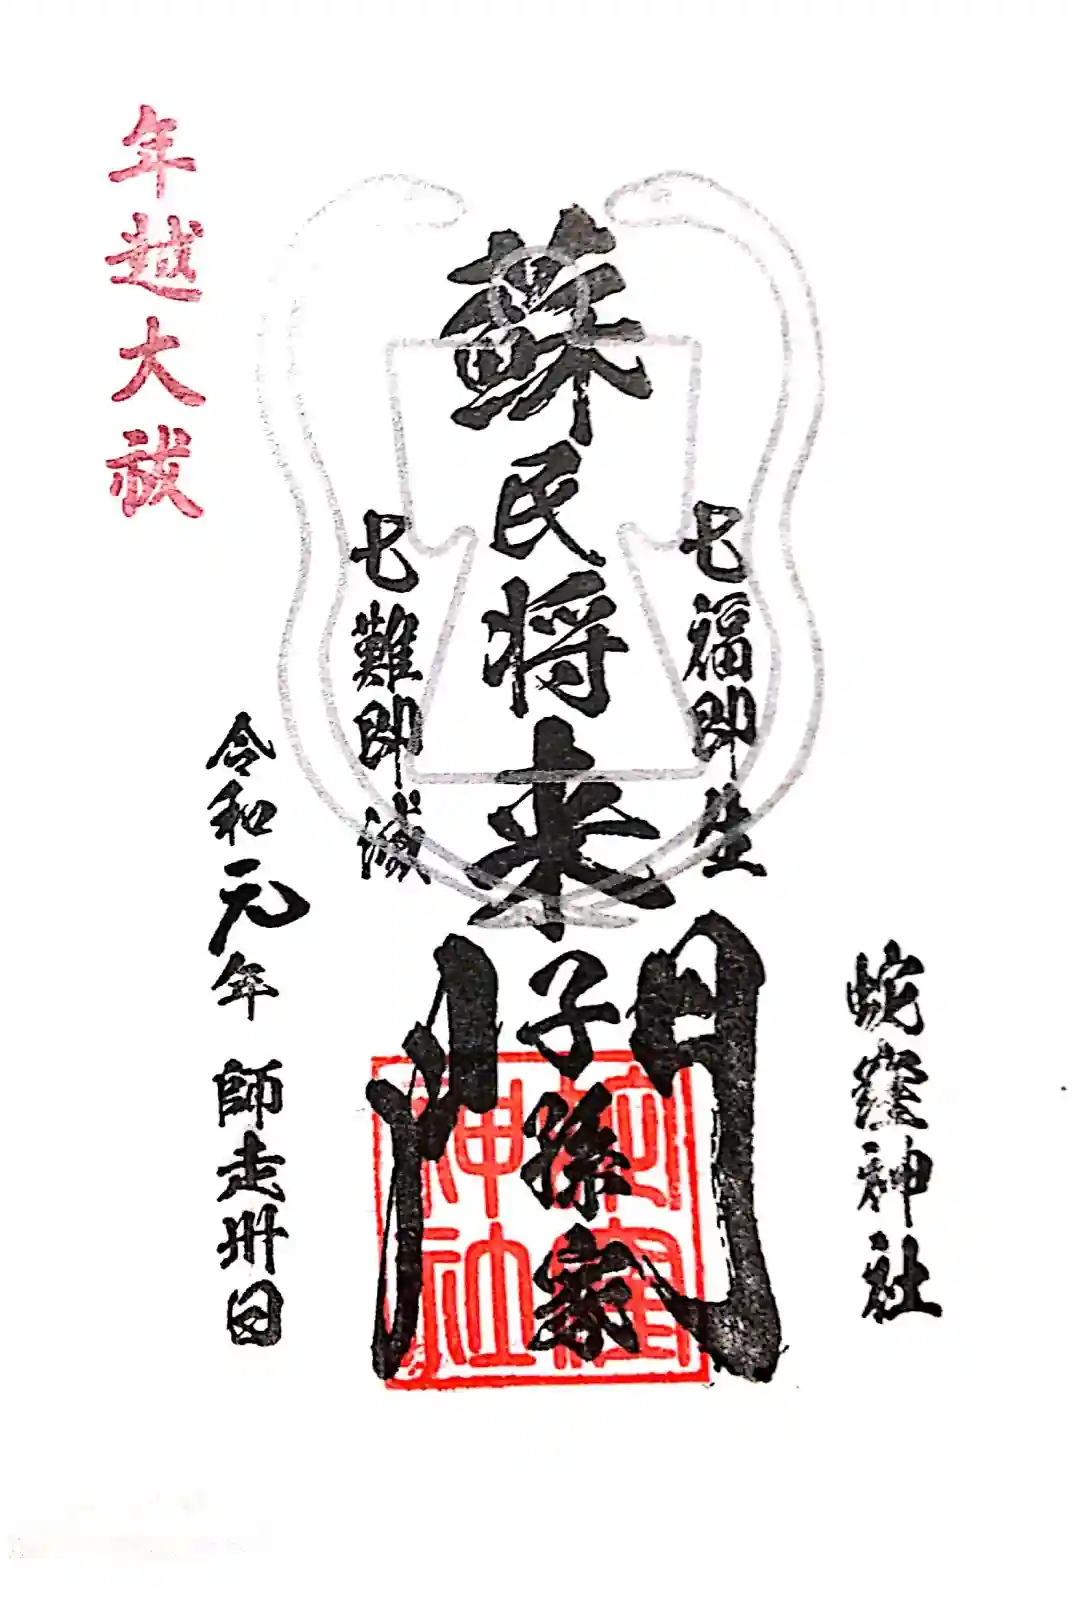 蛇窪神社
七福即生
蘇民将来子孫家門
七難即滅
令和元年 師走卅日
年越大祓
蛇窪神社